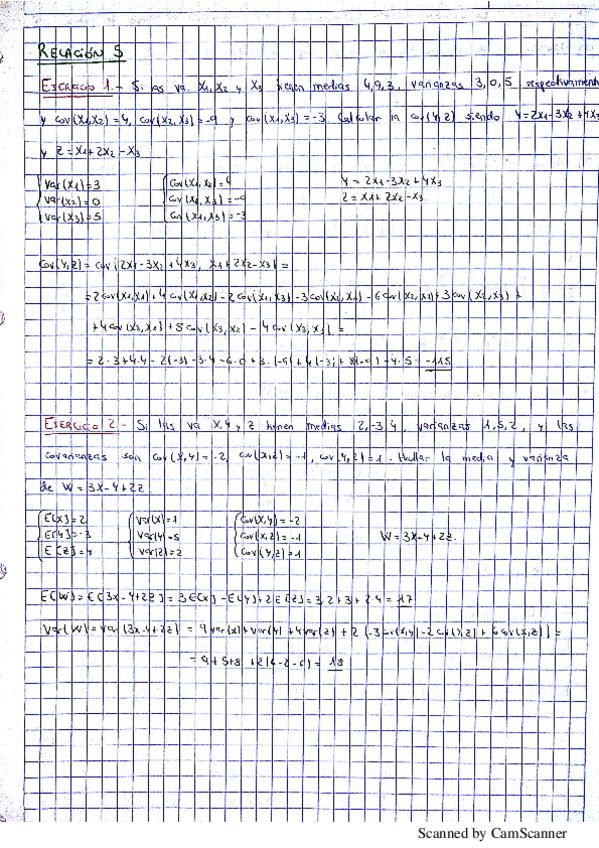 RELACIÓN 5
EJERCICIO 1.- Si las va X1, X2 y X3 tienen medias 4,9,3, varianzas 3,0,5 respectivamente
y cov(X1,X2)=4, cov(X2,X3)=-9 y cov(X1,X3)=-3 Calcular la cov(Y,Z) siendo Y=2X1-3X2+4X3
y Z=X1+2X2-X3
Var(X1)=3 Cov(X1,X2)=4 Y=2X1-3X2+4X3
Var(X2)=0 Z=X1+2X2-X3
Var(X3)=5 Cov(X1,X3)=-3
Cov(Y,Z)=cov(2X1-3X2+4X3, X1+2X2-X3)=
=2cov(X1,X1)+4cov(X1,X2)-2cov(X1,X3)-3cov(X2,X1)-6cov(X2,X2)+3cov(X2,X3)+
+4cov(X3,X1)+8cov(X3,X2)-4cov(X3,X1)=
=2·3+4·4-2(-3)-3·4-6·0+3·(-9)+4(-3)+8(-9)-4·5= -115
EJERCICIO 2.- Si las va X,Y y Z tienen medias 2,-3,4, varianzas 1,5,2, y las
covarianzas son cov(X,Y)=-2, cov(X,Z)=-1, cov(Y,Z)=1. Hallar la media y varianza
de W=3X-Y+2Z
E[X]=2 Var(X)=1 Cov(X,Y)=-2
E[Y]=-3 Var(Y)=5 Cov(X,Z)=-1 W=3X-Y+2Z.
E[Z]=4 Var(Z)=2 Cov(Y,Z)=1
E[W]=E[3X-Y+2Z]=3E[X]-E[Y]+2E[Z]=3·2+3+2·4=17
Var(W)=Var(3X-Y+2Z)=9Var(X)+Var(Y)+4Var(Z)+2(-3cov(X,Y)-2cov(Y,Z)+6cov(X,Z))=
=9+5+8+2(6-2-6)=18
Scanned by CamScanner